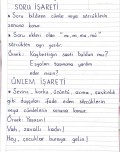 SORU İŞARETİ
• Soru bildiren cümle veya sözcüklerin
sonuna konur.
• Soru ekleri olan "mı, mi, mu, mü"
sözcükten ayrı yazılır.
Örnek: Kaybettiğin saati buldun mu?
Eşyaları taşımama yardım
eder misin?
ÜNLEM İŞARETİ
• Sevinç, korku, üzüntü, acıma, şaşkınlık
gibi duyguları ifade eden sözcüklerin
veya cümlelerin sonuna konur.
Örnek: Yaşasın!
Vah, zavallı kadın!
Hey, çocuklar buraya gelin!